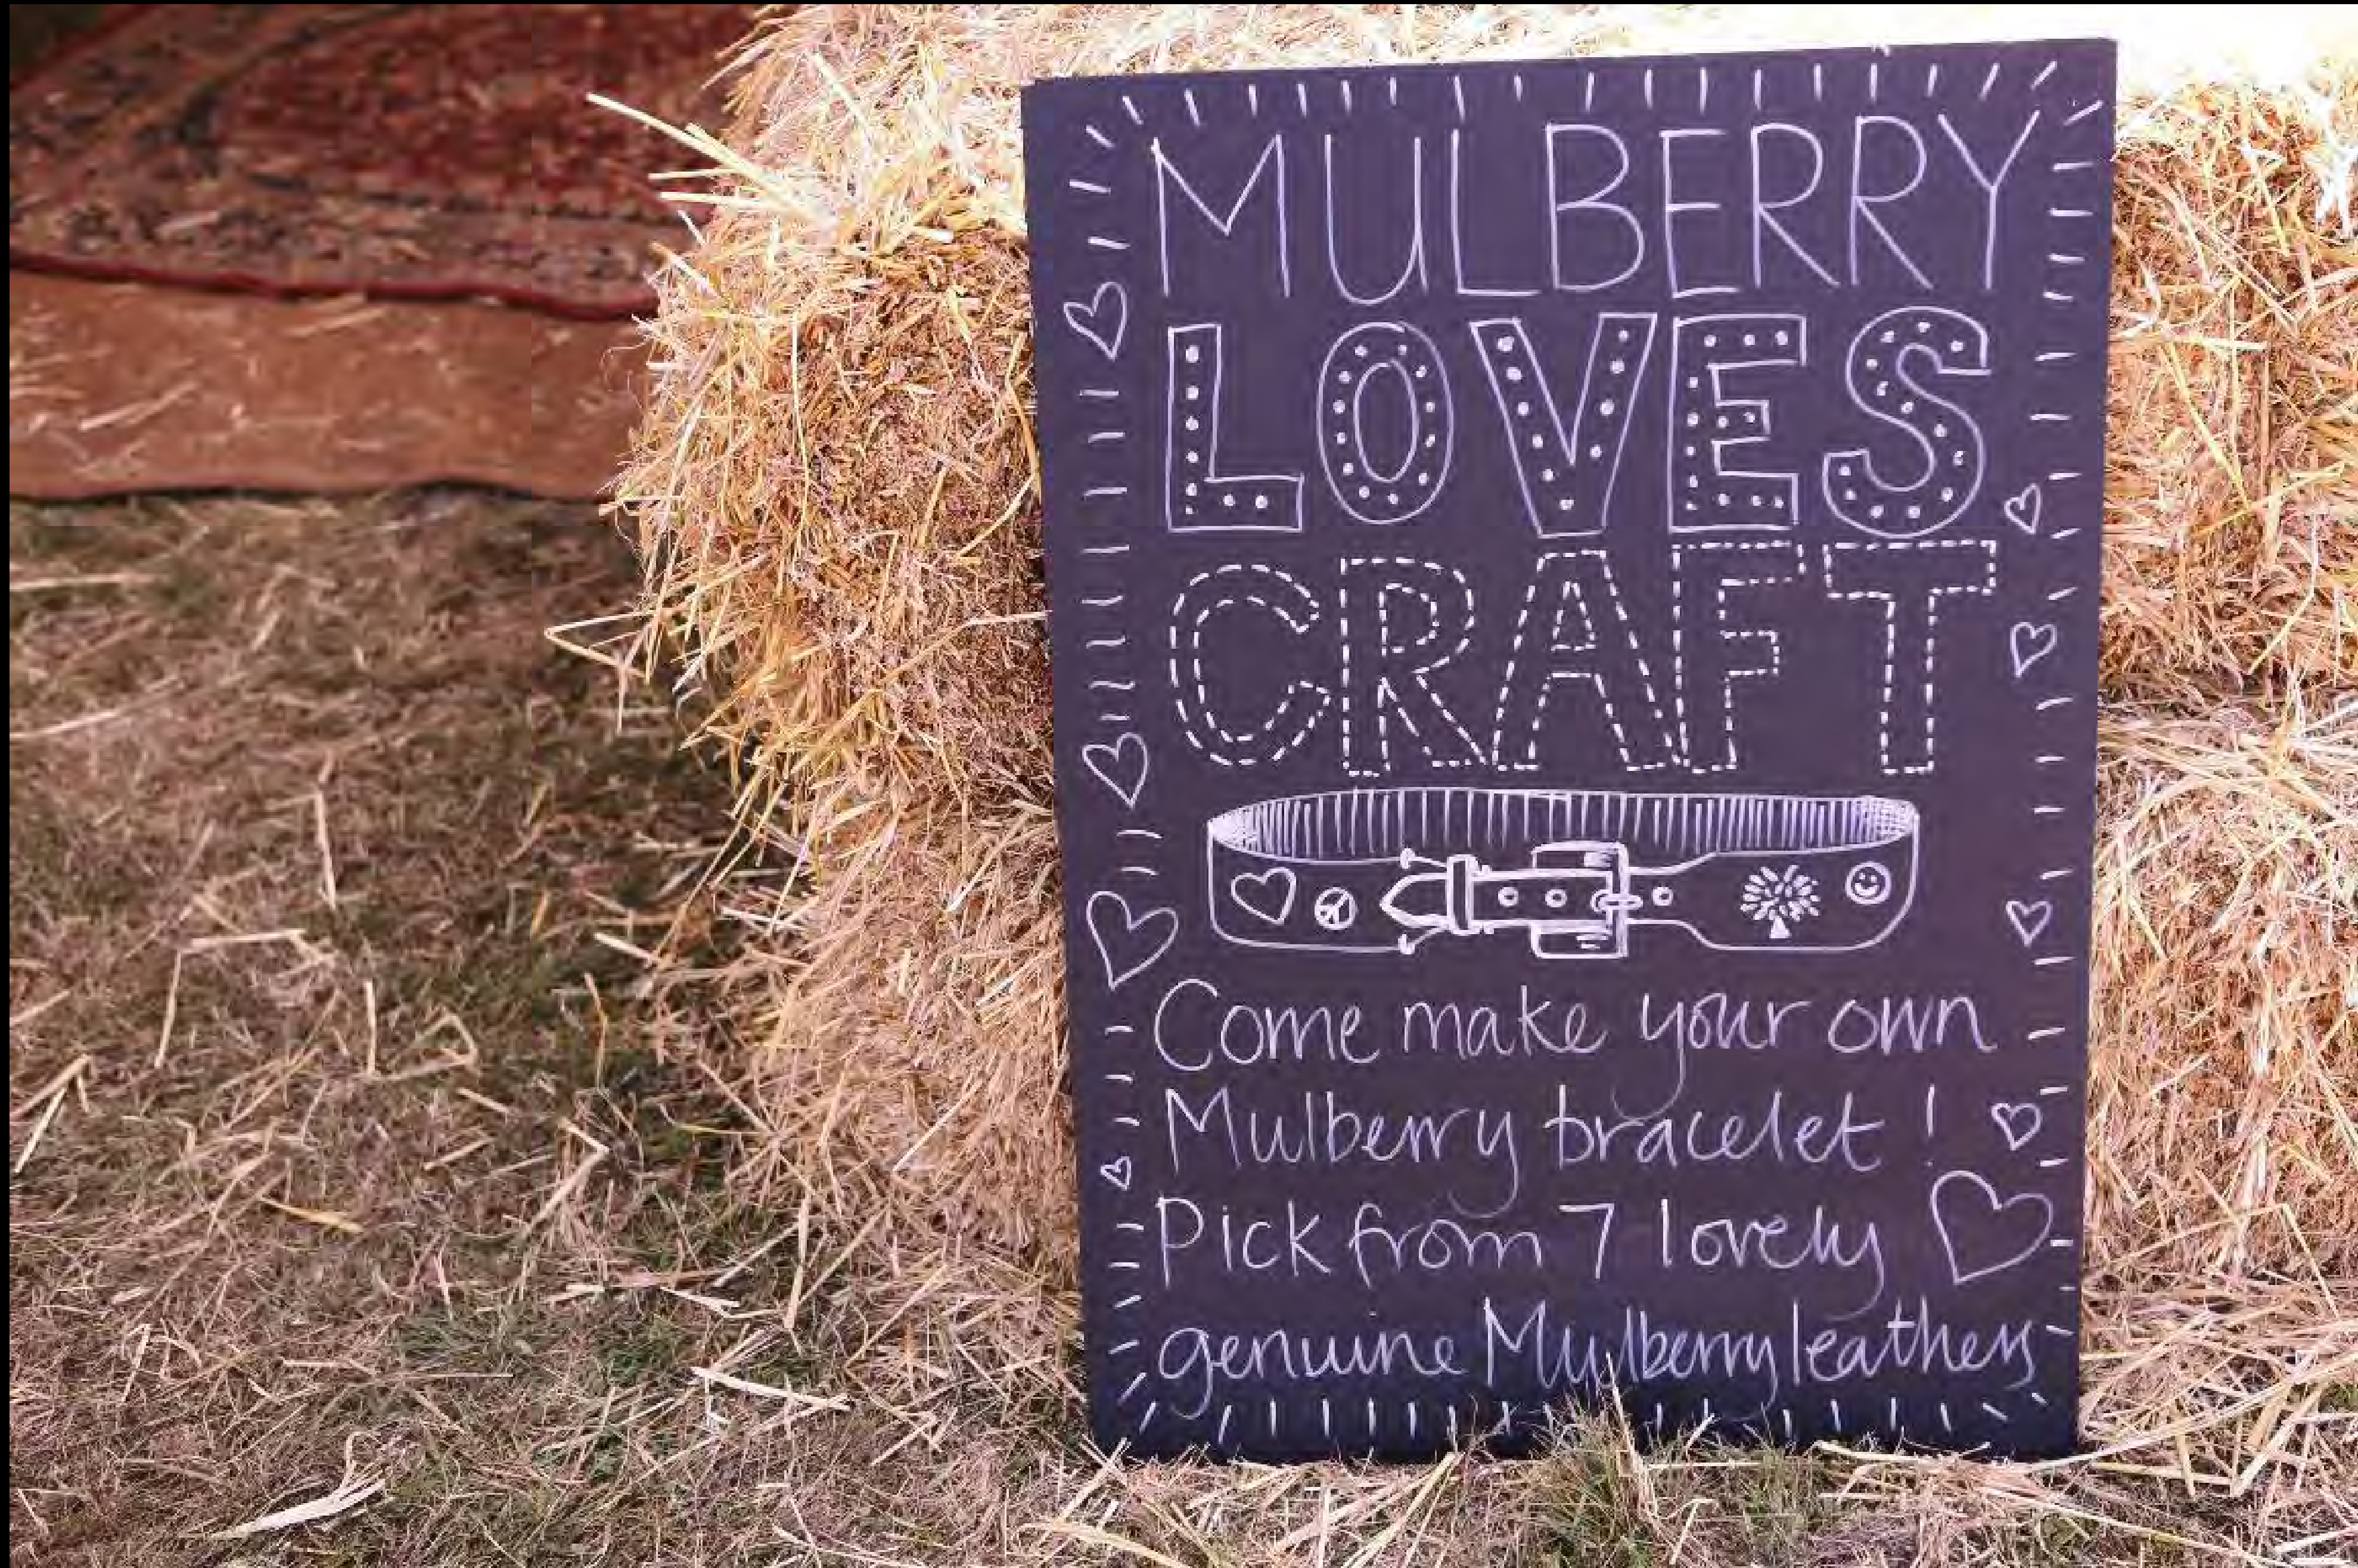 MULBERRY
LOVES
CRAFT
Come make your own
Mulberry bracelet !
Pick from 7 lovely
genuine Mulberry leathers